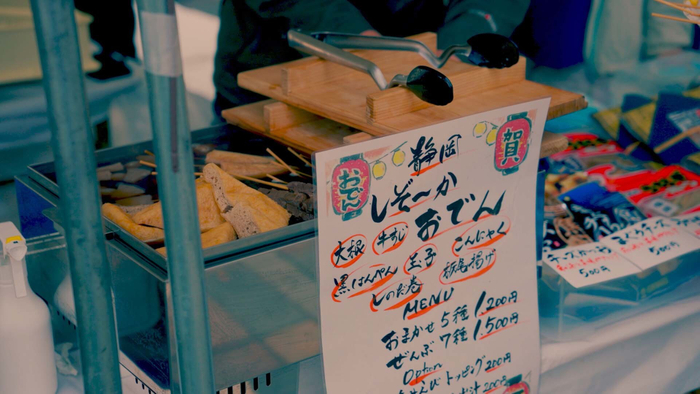 静岡
賀
おでん
しぞ〜か
おでん
大根 牛すじ 玉子 こんにゃく
黒はんぺん 栃尾揚げ
しのだ巻
MENU
おまかせ5種 1,200円
ぜんぶ7種 1,500円
Option
トッピング 200円
500円
500円